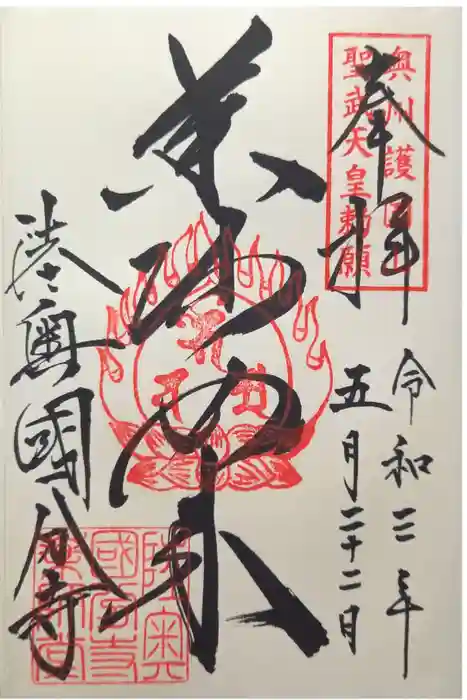 奥州護国
聖武天皇勅願
奉拝
令和三年
五月二十二日
薬師如来
陸奥國分寺
陸奥
國分寺
薬師堂